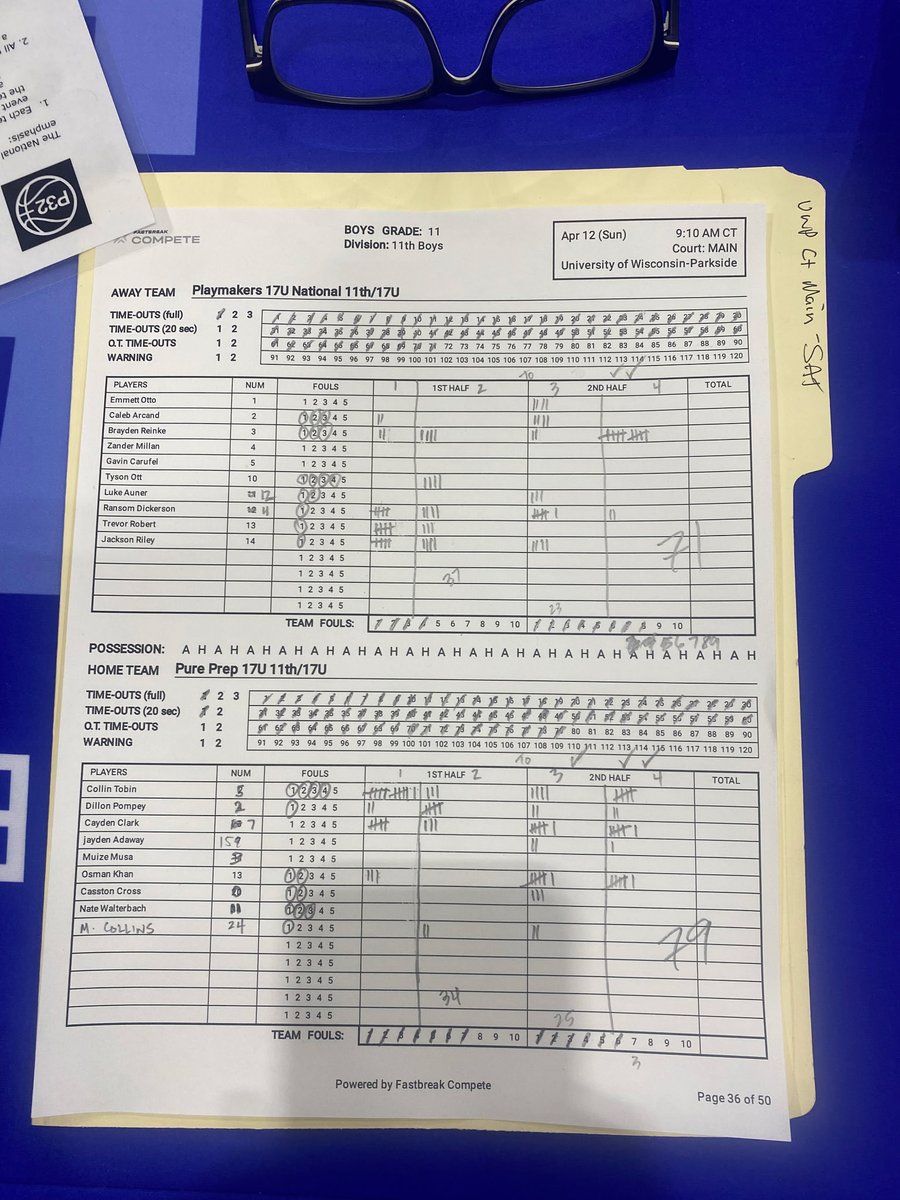 2. All
a
1. Each te
event
the to
The National
emphasis:
P32
UWP Ct Main - SAT
FASTBREAK
COMPETE
BOYS GRADE: 11
Division: 11th Boys
Apr 12 (Sun) 9:10 AM CT
Court: MAIN
University of Wisconsin-Parkside
AWAY TEAM Playmakers 17U National 11th/17U
TIME-OUTS (full) 1 2 3 1 2 3 4 5 6 7 8 9 10 11 12 13 14 15 16 17 18 19 20 21 22 23 24 25 26 27 28 29 30
TIME-OUTS (20 sec) 1 2 31 32 33 34 35 36 37 38 39 40 41 42 43 44 45 46 47 48 49 50 51 52 53 54 55 56 57 58 59 60
O.T. TIME-OUTS 1 2 61 62 63 64 65 66 67 68 69 70 71 72 73 74 75 76 77 78 79 80 81 82 83 84 85 86 87 88 89 90
WARNING 1 2 91 92 93 94 95 96 97 98 99 100 101 102 103 104 105 106 107 108 109 110 111 112 113 114 115 116 117 118 119 120
10
PLAYERS NUM FOULS 1 1ST HALF 2 3 2ND HALF 4 TOTAL
Emmett Otto 1 1 2 3 4 5
Caleb Arcand 2 1 2 3 4 5
Brayden Reinke 3 1 2 3 4 5
Zander Millan 4 1 2 3 4 5
Gavin Carufel 5 1 2 3 4 5
Tyson Ott 10 1 2 3 4 5
Luke Auner 12 1 2 3 4 5
Ransom Dickerson 11 1 2 3 4 5
Trevor Robert 13 1 2 3 4 5
Jackson Riley 14 1 2 3 4 5 71
1 2 3 4 5
1 2 3 4 5 37
1 2 3 4 5
1 2 3 4 5 23
TEAM FOULS: 1 2 3 4 5 6 7 8 9 10 1 2 3 4 5 6 7 8 9 10
56789
POSSESSION: A H A H A H A H A H A H A H A H A H A H A H A H A H A H A H A H A H
HOME TEAM Pure Prep 17U 11th/17U
TIME-OUTS (full) 1 2 3 1 2 3 4 5 6 7 8 9 10 11 12 13 14 15 16 17 18 19 20 21 22 23 24 25 26 27 28 29 30
TIME-OUTS (20 sec) 1 2 31 32 33 34 35 36 37 38 39 40 41 42 43 44 45 46 47 48 49 50 51 52 53 54 55 56 57 58 59 60
O.T. TIME-OUTS 1 2 61 62 63 64 65 66 67 68 69 70 71 72 73 74 75 76 77 78 79 80 81 82 83 84 85 86 87 88 89 90
WARNING 1 2 91 92 93 94 95 96 97 98 99 100 101 102 103 104 105 106 107 108 109 110 111 112 113 114 115 116 117 118 119 120
10
PLAYERS NUM FOULS 1 1ST HALF 2 3 2ND HALF 4 TOTAL
Collin Tobin 1 2 3 4 5
Dillon Pompey 2 1 2 3 4 5
Cayden Clark 7 1 2 3 4 5
jayden Adaway 1 2 3 4 5
Muize Musa 3 1 2 3 4 5
Osman Khan 13 1 2 3 4 5
Casston Cross 1 2 3 4 5
Nate Walterbach 11 1 2 3 4 5
M. COLLINS 24 1 2 3 4 5 79
1 2 3 4 5
1 2 3 4 5
1 2 3 4 5
1 2 3 4 5 34
1 2 3 4 5 25
TEAM FOULS: 1 2 3 4 5 6 7 8 9 10 1 2 3 4 5 6 7 8 9 10
3
Powered by Fastbreak Compete
Page 36 of 50